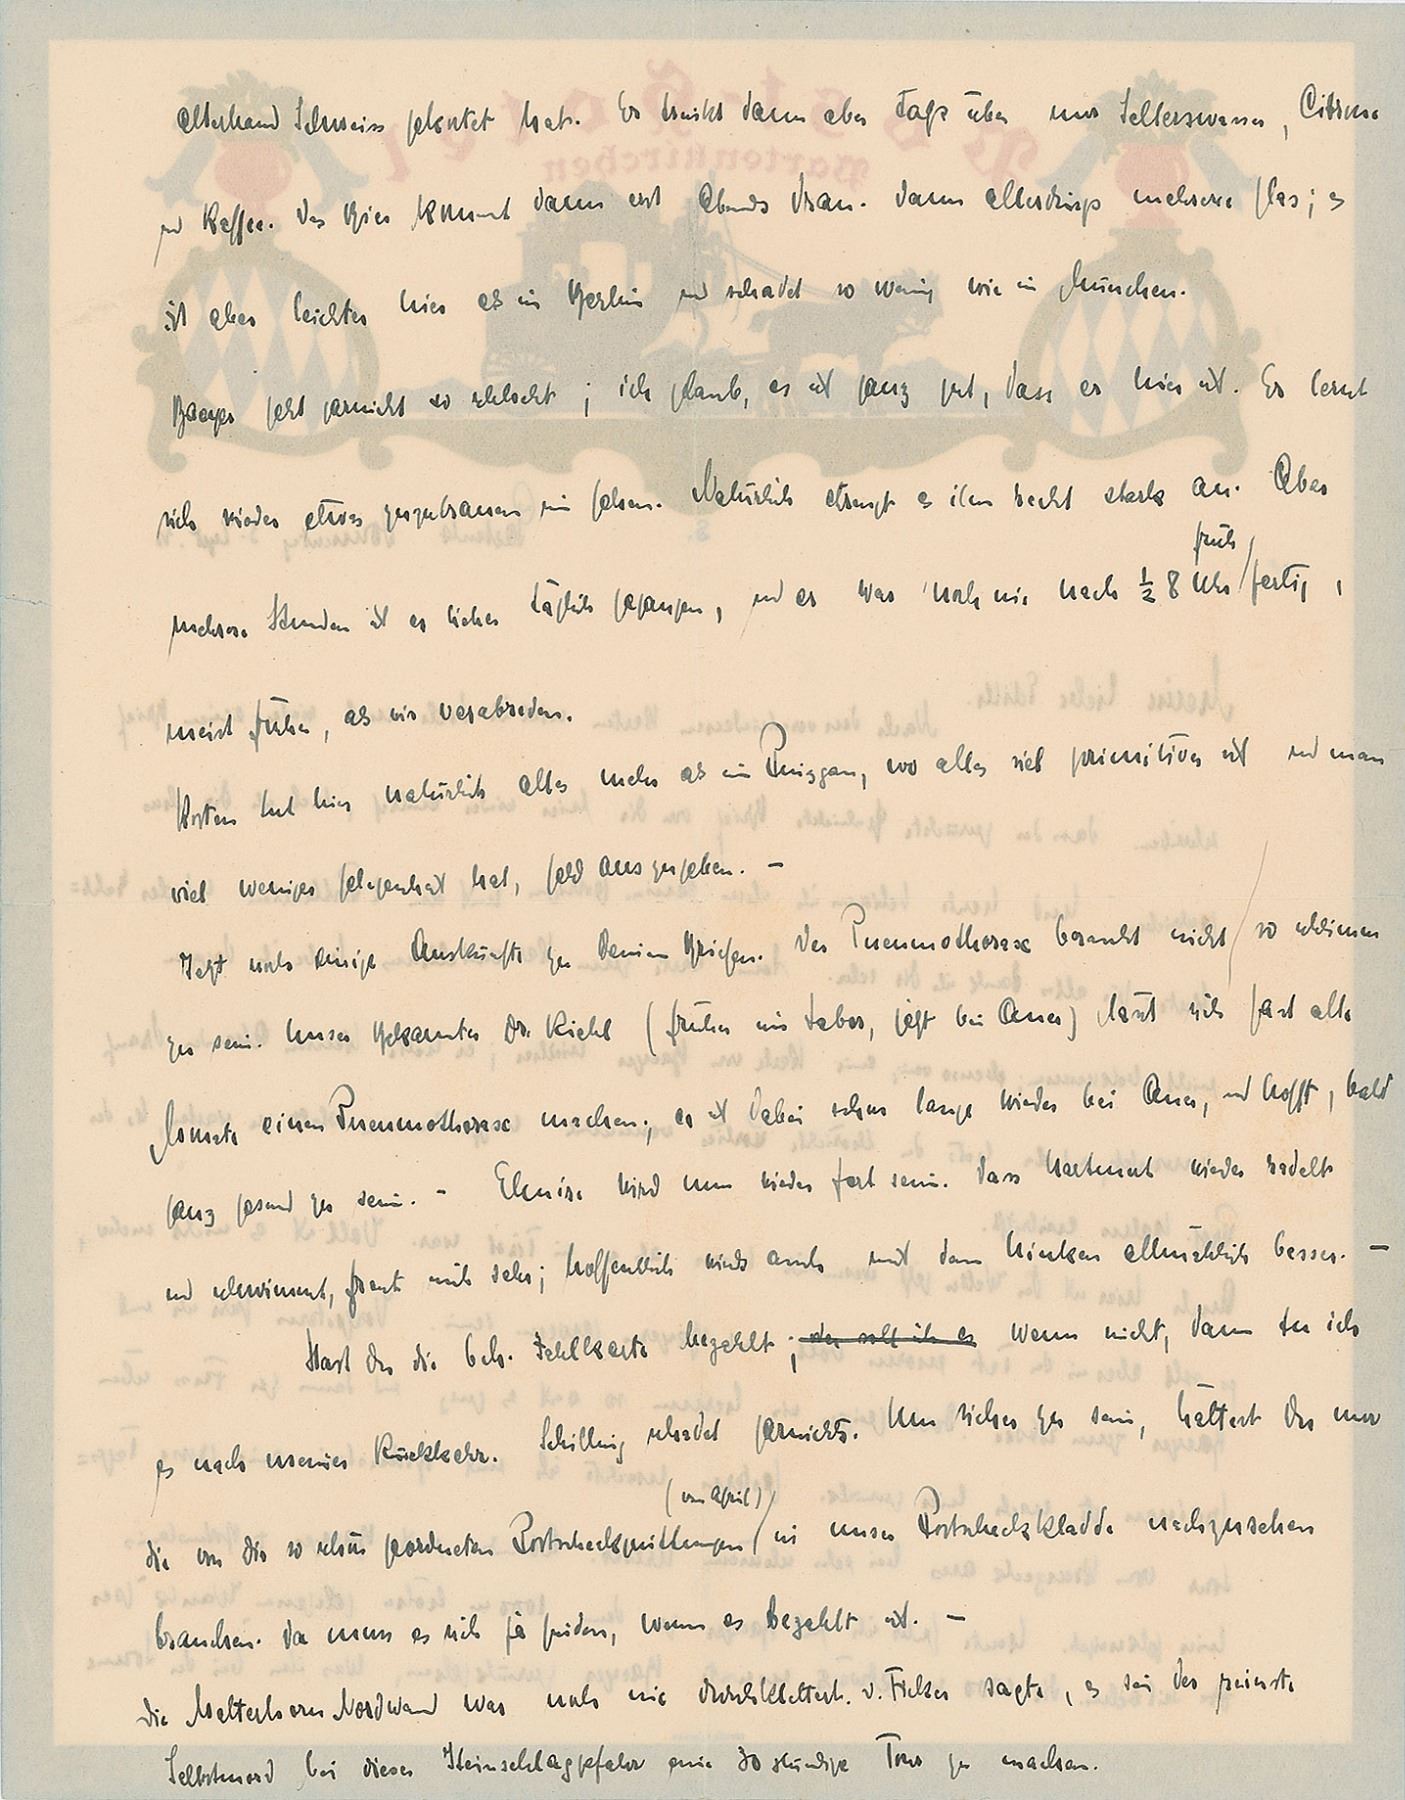 allerhand Schweiss gekostet hat. Er trinkt dann aber Tags über nur Selterswasser, Citrone
und Kaffee. Das Bier kommt dann erst Abends dran. Dann allerdings mehrere Glas; es
ist aber leichter hier als in Berlin und schadet so wenig wie in München.
Baeyer geht garnicht so schlecht; ich glaub, es ist ganz gut, dass er hier ist. Er lernt
sich wieder etwas zuzutrauen im Gehen. Natürlich strengt es ihn recht stark an. Aber
mehrere Stunden ist er bisher täglich gegangen, und er war noch nie nach ½ 8 Uhr früh fertig,
meist früher, als wir verabreden.
Kosten tut hier natürlich alles mehr als in, wo alles viel primitiver ist und man
viel weniger Gelegenheit hat, Geld auszugeben. –
Jetzt noch einige Auskünfte zu Deinen Briefen. Der Pneumothorax braucht nicht so schlimm
zu sein. Unser Bekannter Dr. Riehl (früher im Labor, jetzt bei Auer) lässt sich fast alle
Monate einen Pneumothorax machen; er ist dabei schon lange wieder bei Auer, und hofft, bald
ganz gesund zu sein. – wird nun wieder fort sein. Dass Hartmut wieder radelt
und schwimmt, freut mich sehr; hoffentlich wirds auch mit dem Hinken allmählich besser. –
Hast Du die beh. Zahlkarte bezahlt; oder soll ich es Wenn nicht, dann tu ich
es nach meiner Rückkehr. Schilling schadet garnichts. Um sicher zu sein, hättest Du nur
die von Dir so schön geordneten Postscheckquittungen (von April) in unser Postscheckkladde nachzusehen
brauchen. Da muss es sich ja finden, wenn es bezahlt ist. –
Die Matterhorn Nordwand war noch nie durchklettert. v. Ficker sagte, es sei der reinste
Selbstmord bei dieser Steinschlaggefahr eine 30stündige Tour zu machen.